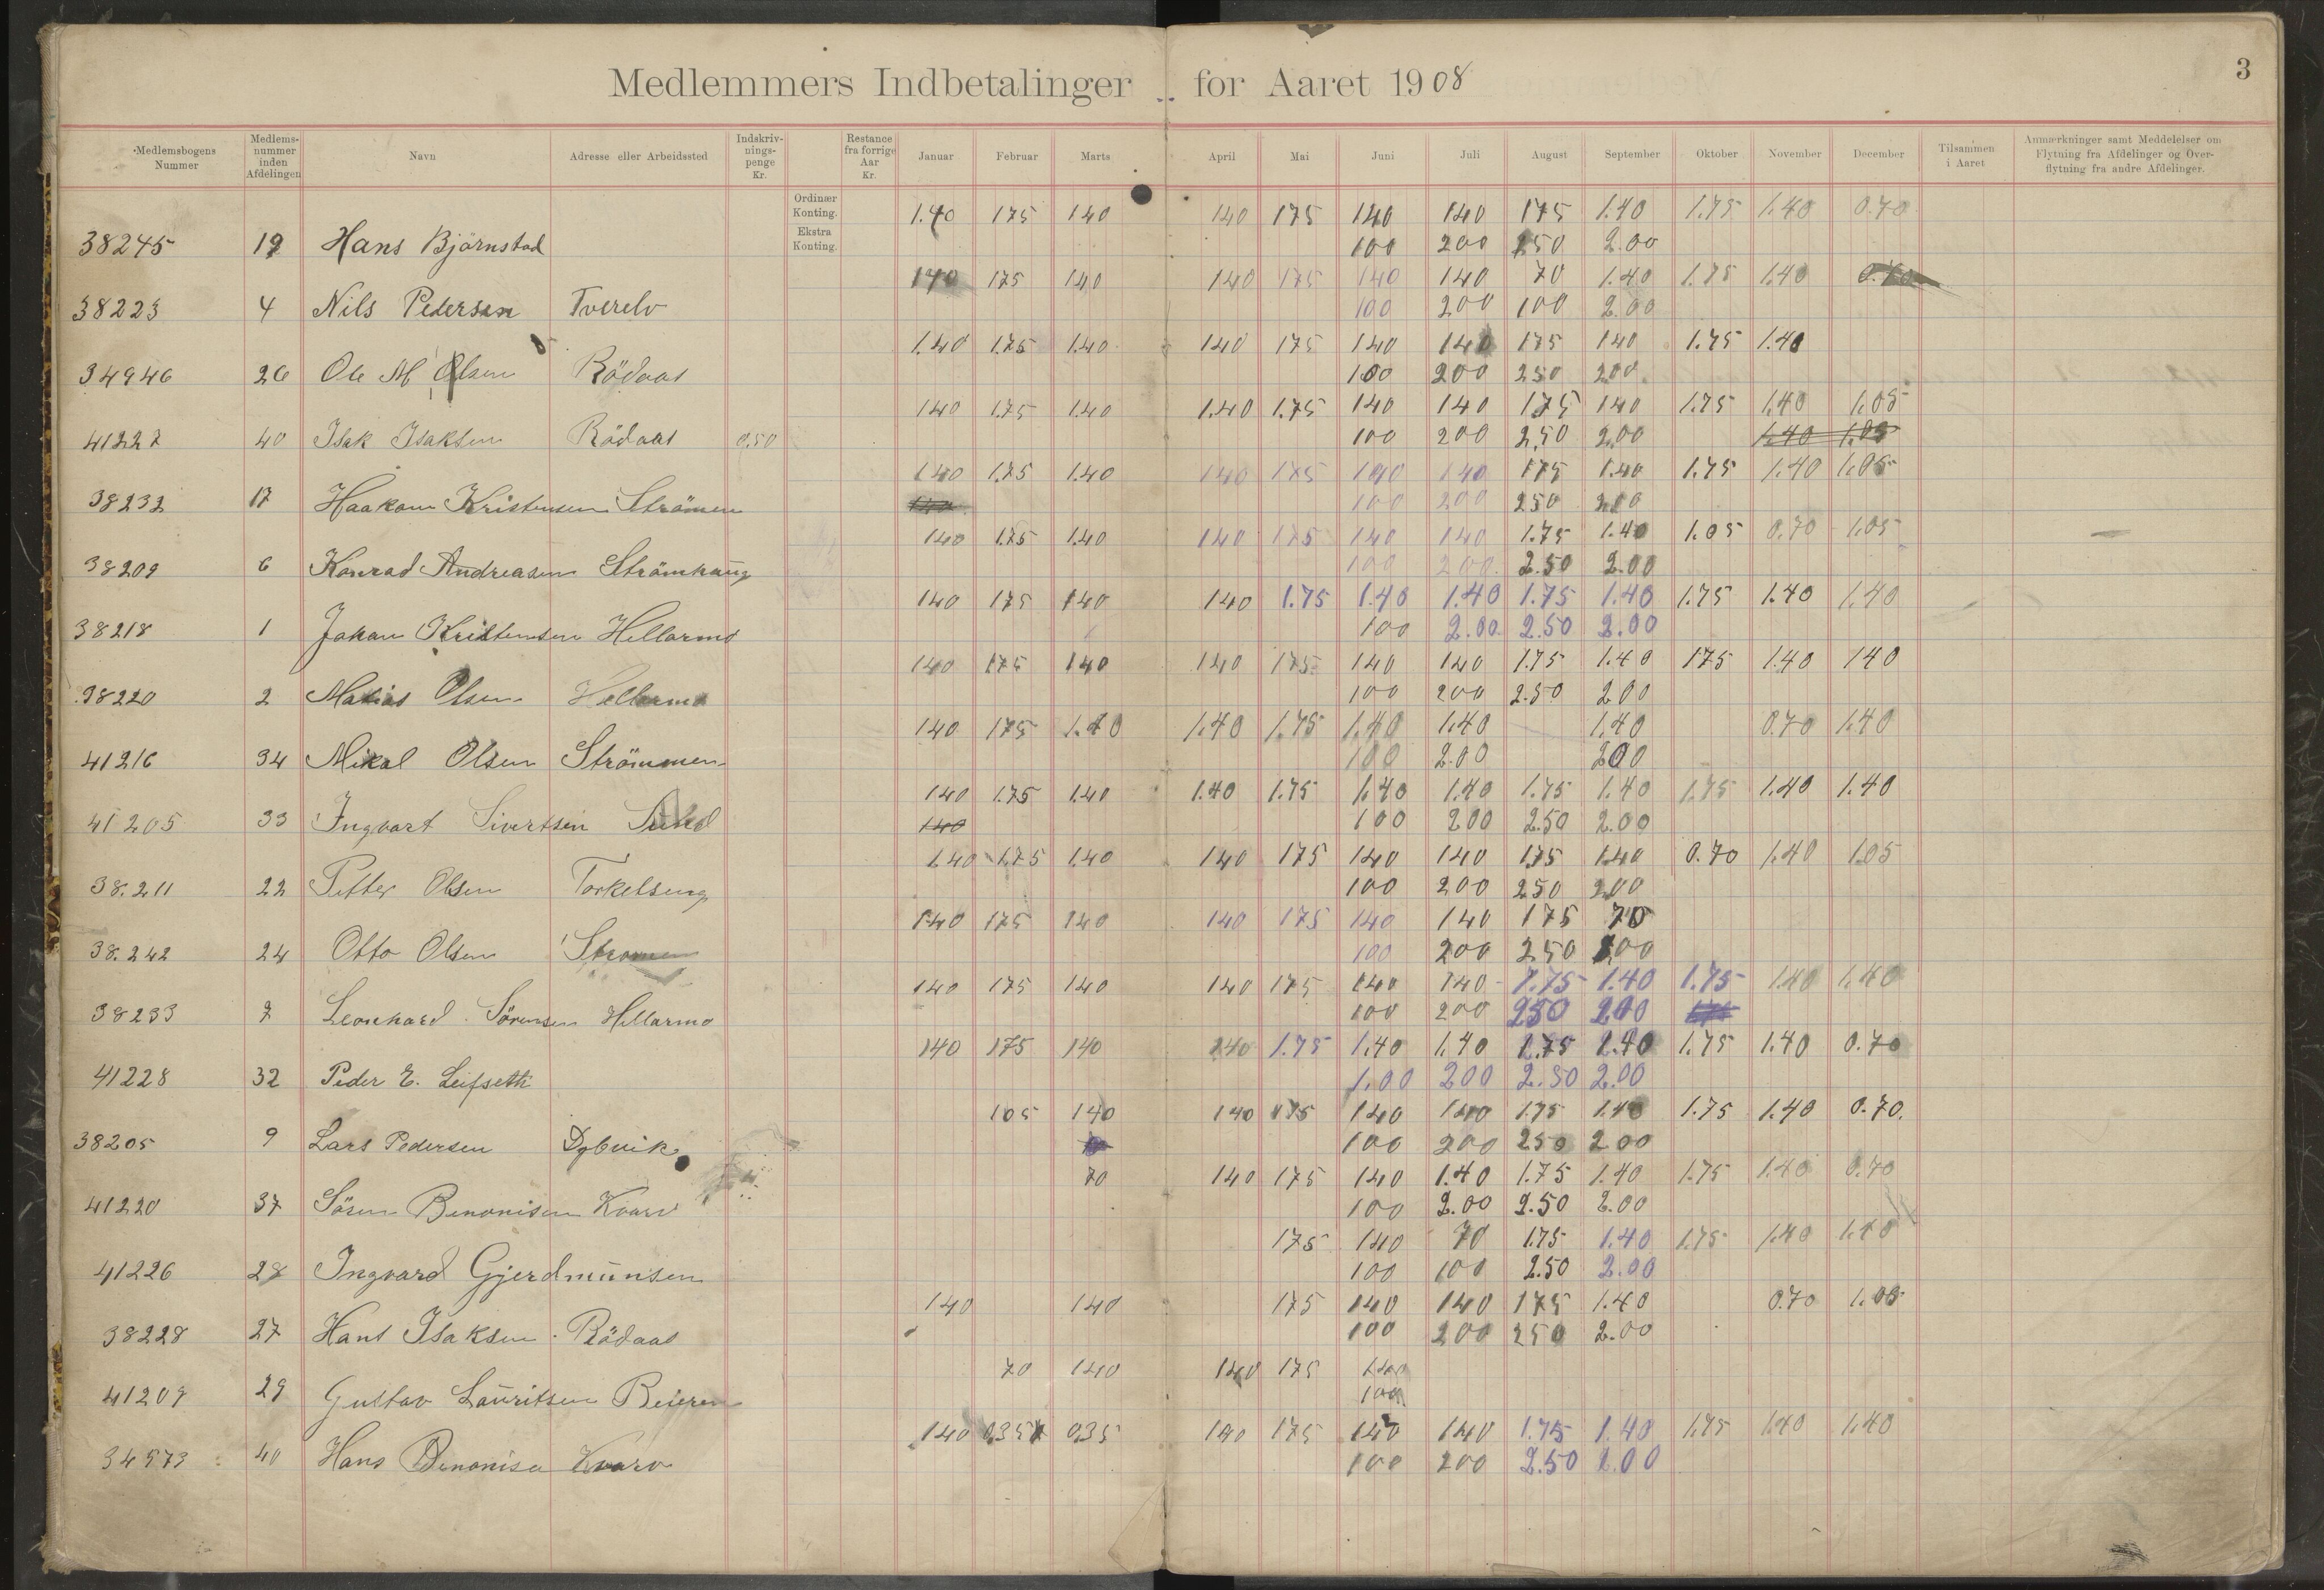 Medlemmers Indbetalinger for Aaret 1908
3
Medlemsbogens Nummer
Medlems-nummer inden Afdelingen
Navn
Adresse eller Arbeidssted
Indskriv-nings-penge Kr.
Restance fra forrige Aar Kr.
Januar Februar Marts April Mai Juni Juli August September Oktober November December
Tilsammen i Aaret
Anmærkninger samt Meddelelser om Flytning fra Afdelinger og Over-flytning fra andre Afdelinger.
Ordinær Konting. 1.40 175 140 140 175 140 140 175 1.40 1.75 1.40 0.70
38245 19 Hans Björnstad Ekstra Konting. 100 200 250 2.00
140 175 140 140 175 140 140 70 1.40 1.75 1.40
38223 4 Nils Pedersen Tverelv 100 200 100 2.00
1.40 1.75 1.40 140 175 140 140 175 140 1.75 1.40
34946 26 Ole M Olsen Rödaas 100 200 250 200
140 1.75 1.40 1.40 1.75 140 140 175 140 1.75 1.40 1.05
41227 40 Isak Isaksen Rödaas 0,50 100 200 2,50 2,00 1.40 1.05
140 1.75 1.40 140 175 140 140 175 1.40 1.75 1.40 1.05
38232 17 Haakon Kristensen Strömen 100 200 250 200
140 1.75 1.40 140 175 140 140 1.75 1.40 1.05 0.70 1.05
38209 6 Konrad Andreasen Strömhaug 100 200 2.50 2.00
140 175 140 140 1.75 1.40 1.40 1.75 1.40 1.75 1.40 1.40
38218 1 Johan Kristensen Hellarmo 100 2.00 2.50 2.00
140 175 140 140 175 140 140 1.75 1.40 175 1.40 140
38220 2 Matias Olsen Hellarmo 100 200 2.50 200
140 175 1.40 1.40 1.75 1.40 1.40 1.40 0.70 1.40
41216 34 Mikal Olsen Strömmen 100 2.00 200
140 1.75 1.40 1.40 1.75 1.40 1.40 1.75 1.40 1.75 1.40 1.40
41205 33 Ingvart Sivertsen Sund 140 100 200 2.50 2.00
1.40 1.75 1.40 140 175 140 140 175 140 0.70 1.40 1.05
38.211 22 Petter Olsen Torkelseng 100 200 250 200
140 175 140 140 175 140 140 175 70
38.242 24 Otto Olsen Stromen 100 200 250 100
140 175 140 140 175 140 140 1.75 1.40 1.75 1.40 1.40
38233 7 Leonhard Sörensen Hellarmo 100 200 250 200
140 175 140 140 1.75 1.40 1.40 1.75 1.40 1.75 1.40 0.70
41228 32 Peder E. Leifseth 1.00 200 2.50 2.00
105 140 140 175 140 140 1.75 1.40 1.75 1.40 0.70.
38205 9 Lars Pedersen Dybvik 100 200 250 200
70 140 175 140 1.40 1.75 1.40 1.75 1.40 0.70
41220 37 Sören Benonisen Kvarv 100 2.00 2.50 2.00
175 140 70 1.75 1.40 1.75 1.40 1.40
41226 28 Ingvard Gjerdmunsen 100 100 2.50 2.00
140 140 175 140 140 175 1.40 0.70 1.05
38228 27 Hans Isaksen Rödaas 100 200 250 2.00
70 140 140 175 140
41209 29 Gustav Lauritsen Beieren 100
140 0,35 0,35 140 175 140 140 1.75 1.40 1.75 1.40 1.40
34973 40 Hans Benonise Kvarv 100 200 2.50 2.00